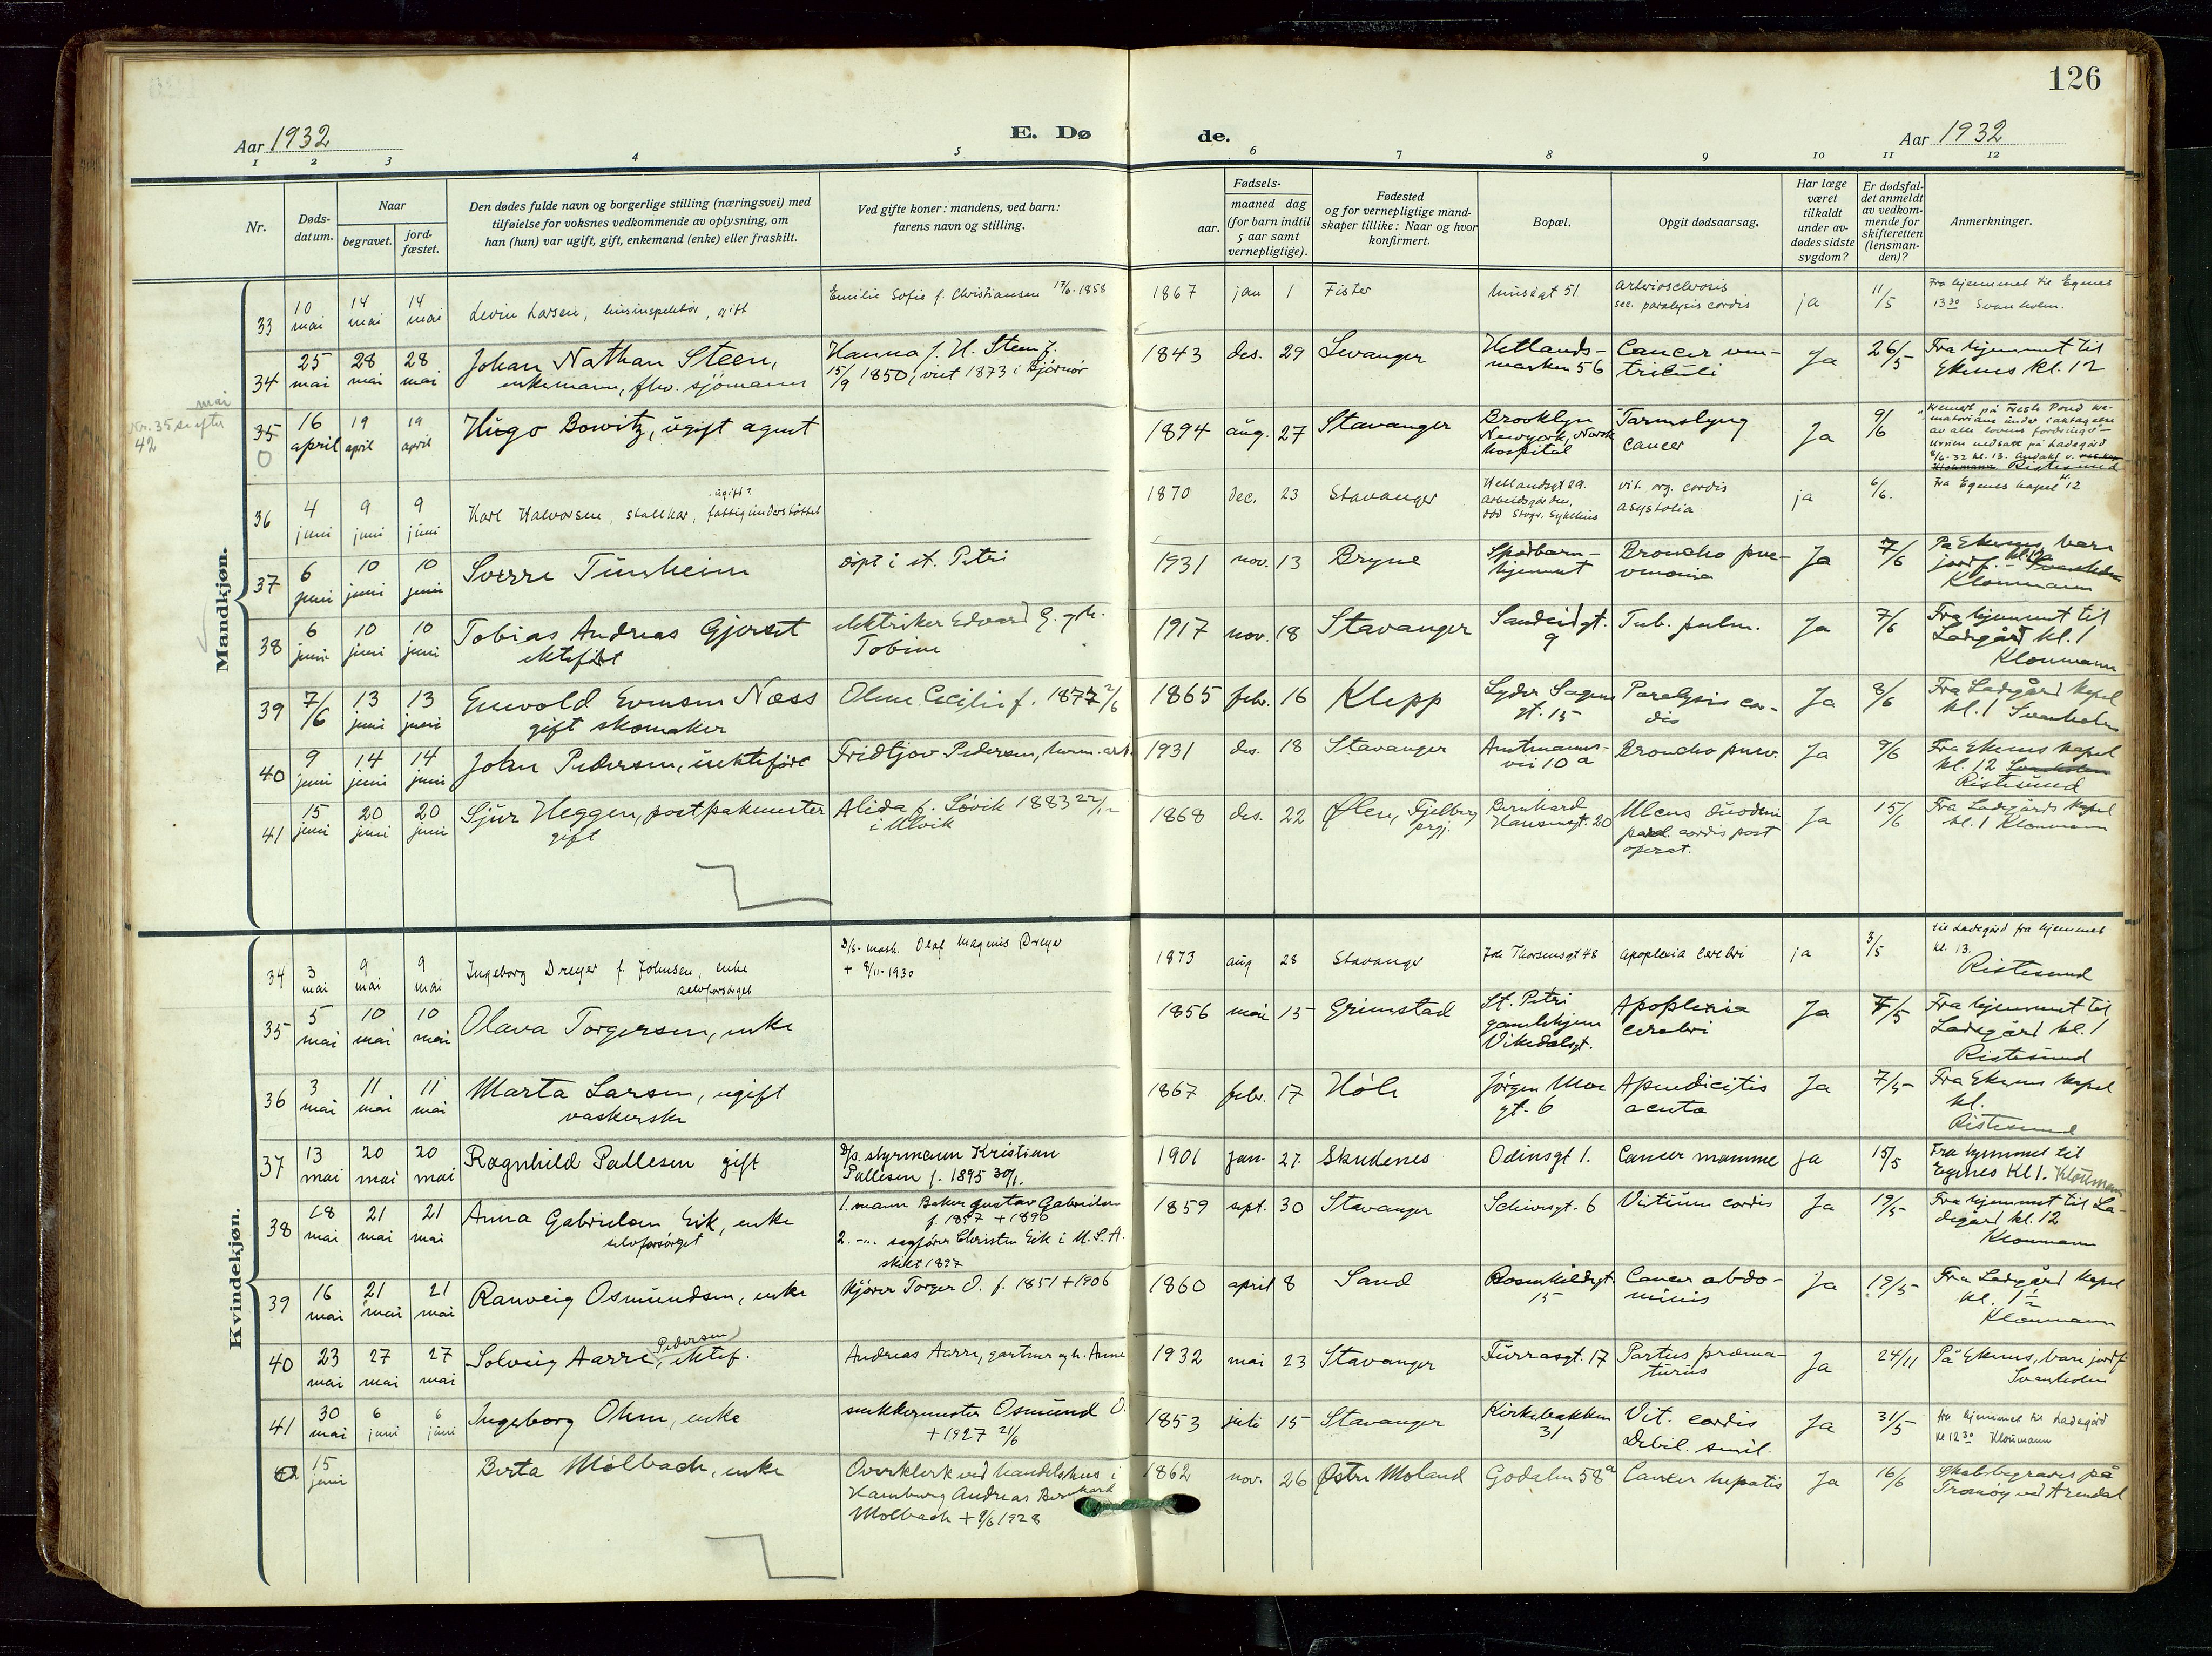 126
Aar 1932
E. Dø
de.
Aar 1932
1 2 3 4 5 6 7 8 9 10 11 12
Nr.
Døds-
datum.
Naar
begravet.
jord-
fæstet.
Den dødes fulde navn og borgerlige stilling (næringsvei) med
tilføielse for voksnes vedkommende av oplysning, om
han (hun) var ugift, gift, enkemand (enke) eller fraskilt.
Ved gifte koner: mandens, ved barn:
farens navn og stilling.
Fødsels-
aar.
maaned dag
(for barn indtil
5 aar samt
vernepligtige).
Fødested
og for vernepligtige mand-
skaper tillike: Naar og hvor
konfirmert.
Bopæl.
Opgit dødsaarsag.
Har læge
været
tilkaldt
under av-
dødes sidste
sygdom?
Er dødsfal-
det anmeldt
av vedkom-
mende for
skifteretten
(lensman-
den)?
Anmerkninger.
Mandkjøn.
33 10 mai 14 mai 14 mai Levin Larsen, gift
Emilie Sofie f. Christiansen 1858
1867 jan 1 Fister 51 arteriosclerosis
sec. paralysis cordis ja 11/5 Fra hjemmet til Egenes
13 30 Svanholm.
34 25 mai 28 mai 28 mai Johan Nathan Steen,
enkemann, fhv. sjömann
Hanna f. H. Steen f.
15/9 1850, viet 1873 i Bjørnør
1843 des. 29 Levanger Hetlands-
marken 56 Cancer ven-
triculi Ja 26/5 Fra hjemmet til
Ekenes kl. 12
mai
Nr. 35 se efter
42
35 0 16 april 19 april 19 april Hugo Bowitz, ugift agent
1894 aug. 27 Stavanger Brooklyn
Newyork, Norsk
hospital Tarmslyng
Cancer Ja 9/6 Kremert på Fresh Pond kre-
matorium under iakttagelse
av alle lovens fordringer
Urnen nedsatt på Ladegård
8/6-32 kl. 13. Andakt v.
Ristesund
36 4 juni 9 juni 9 juni Karl Halvorsen, stallkar, fattigunderstøttet
ugift?
1870 dec. 23 Stavanger Hetlandsgt 29.
arbeidsgården,
død Stvgr. Sykehus vit. org. cordis
asystolia ja 6/6. Fra Egenes kapel kl. 12
37 6 juni 10 juni 10 juni Sverre Tunheim døpt i st. Petri
1931 nov. 13 Bryne Spedbarn-
hjemmet Broncho pne-
umonia Ja 7/6 På Ekenes, bare
jordf. kl. 12
Kloumann
38 6 juni 10 juni 10 juni Tobias Andreas Gjerset
ektefødt
elektriker Edvard G. og h.
Tobine
1917 nov. 18 Stavanger Sandeidgt.
9 Tub. pulm. Ja 7/6 Fra hjemmet til
Ladegård kl. 1
Kloumann
39 7/6 13 juni 13 juni Enevold Evensen Næss
gift skomaker
Olene Cecilie f. 1877 2/6
1865 febr. 16 Klepp Lyder Sagens
gt. 15 Paralysis cor-
dis Ja 8/6 Fra Ladegård kapel
kl. 1 Svanholm
40 9 juni 14 juni 14 juni John Pedersen, uektefødt
Fridtjov Pedersen, herm. arb.
1931 des. 18 Stavanger Austmanns-
vei 10 a Broncho pneu. Ja 9/6 Fra Ekenes kapel
kl. 12 Svanholm
Ristesund
41 15 juni 20 juni 20 juni Sjur Heggen, postpakmester
gift
Alida f. Søvik 1883 22/12
i Ulvik
1868 des. 22 Ølen, Fjelberg
prgj. Bernhard
Hansensgt. 20 Ulcus duodeni
paral. cordis post
operat. Ja 15/6 Fra Ladegårds kapel
kl. 1 Kloumann
Kvindekjøn.
34 3 mai 9 mai 9 mai Ingeborg Dreyer f. Johnsen, enke
selvforsørget
D/s. mask. Olaf Magnus Dreyer
+ 8/11-1930
1873 aug 28 Stavanger Joh Thorsensgt 48 apoplexia cerebri ja 3/5 til Ladegård fra hjemmet
kl. 13.
Ristesund
35 5 mai 10 mai 10 mai Olava Torgersen, enke
1856 mai 15 Grimstad St. Petri
gamlehjem
Vikedalsgt. Apoplexia
cerebri Ja 7/5 Fra hjemmet til
Ladegård kl. 1
Ristesund
36 3 mai 11 mai 11 mai Marta Larsen, ugift
vaskerske
1867 febr. 17 Høle Jörgen Moe
gt. 6 Apendicitis
acuta Ja 7/5 Fra Ekenes kapel
kl.
Ristesund
37 13 mai 20 mai 20 mai Ragnhild Pallesen gift
D/s. styrmann Kristian
Pallesen f. 1895 30/1.
1901 jan. 27. Skudenes Odinsgt 1. Cancer mamme Ja 15/5 Fra hjemmet til
Egenes Kl 1. Kloumann
38 18 mai 21 mai 21 mai Anna Gabrielsen Eik, enke
selvforsørget
1. mann Baker Gustav Gabrielsen
f. 1857 + 1890
2. -"- sagfører Christen Eik i U.S.A.
skilt 1897
1859 sept. 30 Stavanger Scheersgt. 6 Vitium cordis Ja 19/5 Fra hjemmet til La-
degård kl. 12
Kloumann
39 16 mai 21 mai 21 mai Ranveig Osmundsen, enke
Kjører Torger O. f. 1851 + 1906
1860 april 8 Sand Rosenkildegt.
15 Cancer abdo-
minis Ja 19/5 Fra Ladegård kapel
kl. 1 1/2
Kloumann
40 23 mai 27 mai 27 mai Solveig Aarre Pedersen, ektef.
Andreas Aarre, gartner og h. Anne
1932 mai 23 Stavanger Furrasgt. 17 Partus præma-
turus Ja 24/11 På Ekenes, bare jordf.
Svanholm
41 30 mai 6 juni 6 juni Ingeborg Ohm, enke
snekkermester Osmund O.
+ 1927 21/6
1853 juli 15 Stavanger Kirkebakken
31 Vit. cordis
Debil. senil. Ja 31/5 fra hjemmet til Ladegård
kl 12 30 Kloumann
42 15 juni Berta Mölbach, enke
Overklerk ved handelshus i
Hamburg Andreas Bernhard
Mölbach + 9/6 1928
1862 nov. 26 Østre Moland Godalen 58 a Cancer hepatis Ja 16/6 Skal begraves på
Tromøy ved Arendal